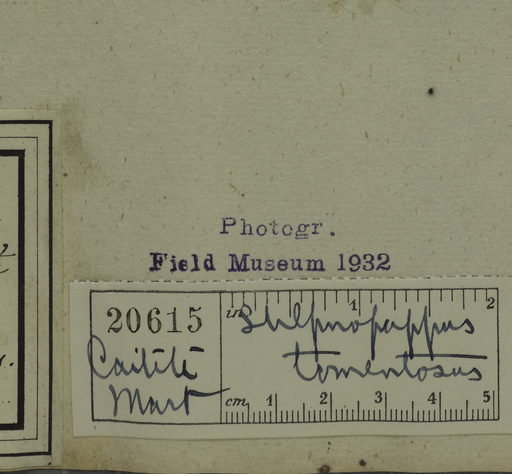 Photogr.
Field Museum 1932
20615
Caitité
Mart
in 1 2
Stilpnopappus
tomentosus
cm 1 2 3 4 5